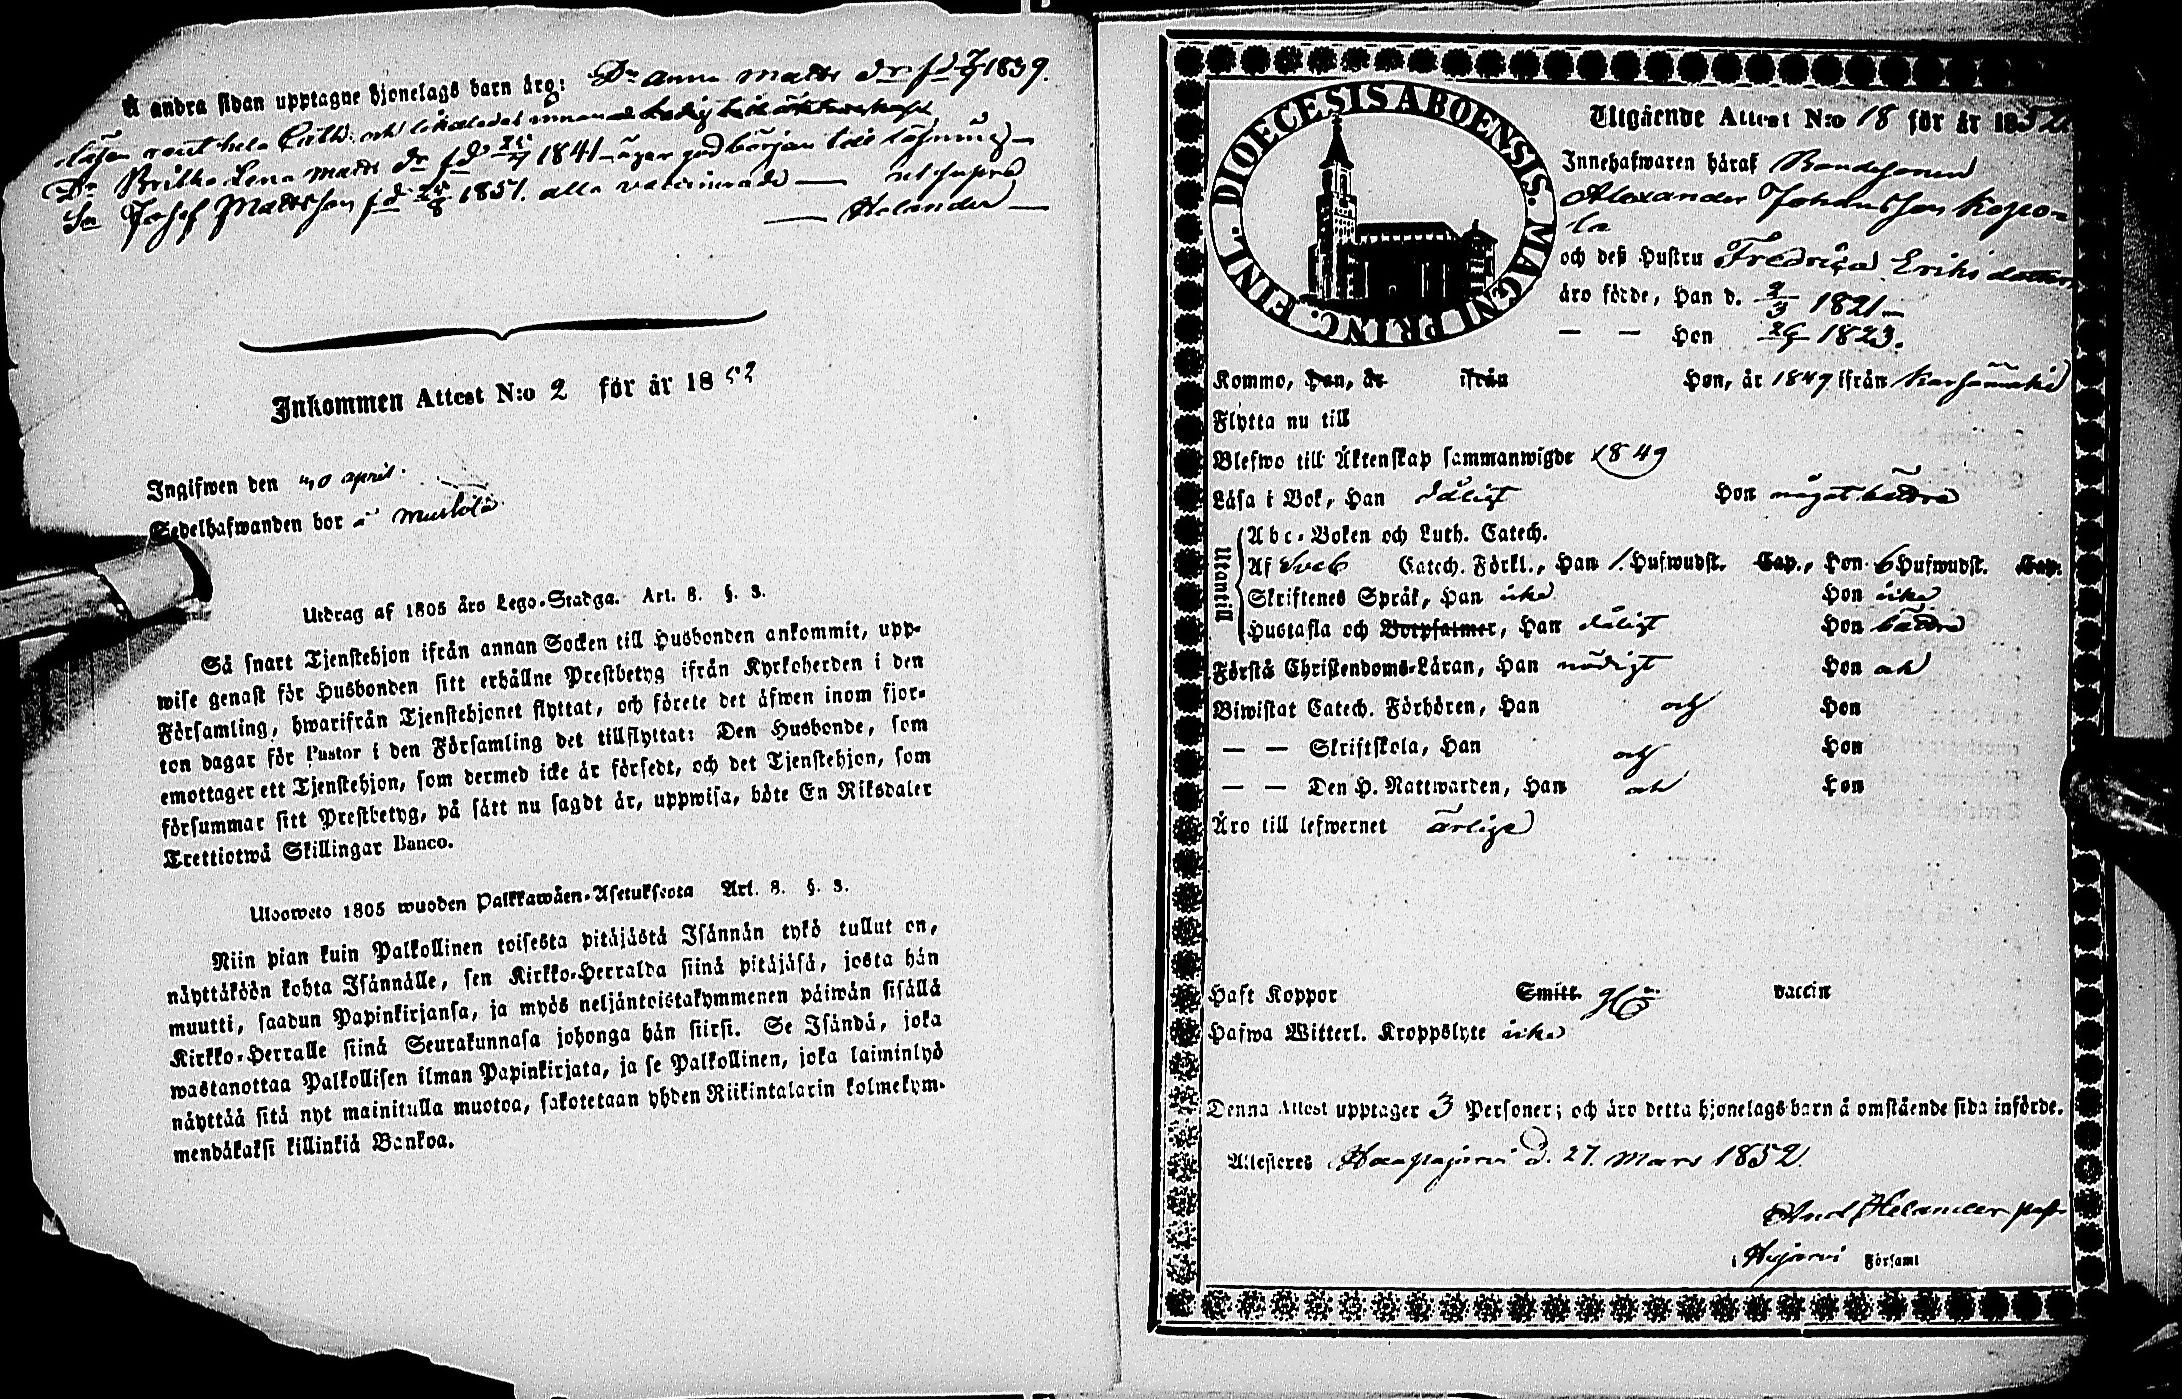 Å andra sidan upptagne hjonelags barn äro: Dr Anna Matts dr fd 7/9 1839.
hela Luth. och
Dr Britha Lena Matts dr fd 1841 äger god början till läsning
Sn Josef Mattsson fd 25/8 1851. alla vaccinerade — ut supra
— Helander —
Inkommen Attest N:o 2 för år 1852
Ingifwen den 30 april
Sedelhafwanden bor å
Utdrag af 1805 års Lego-Stadga. Art. 8. §. 3.
Så snart Tjenstehjon ifrån annan Socken till Husbonden ankommit, upp-
wise genast för Husbonden sitt erhållne Prestbetyg ifrån Kyrkoherden i den
Församling, hwarifrån Tjenstehjonet flyttat, och förete det äfwen inom fjor-
ton dagar för Pastor i den Församling det tillflyttat: Den Husbonde, som
emottager ett Tjenstehjon, som dermed icke är försedt, och det Tjenstehjon, som
försummar sitt Prestbetyg, på sätt nu sagdt är, uppwisa, böte En Riksdaler
Trettiotwå Skillingar Banco.
Ulosweto 1805 wuoden Palkkawäen-Asetuksesta Art. 8. §. 3.
Niin pian kuin Palkollinen toisesta pitäjästä Isännän tykö tullut on,
näyttäköön kohta Isännälle, sen Kirkko-Herralda siinä pitäjäsä, josta hän
muutti, saadun Papinkirjansa, ja myös neljäntoistakymmenen päiwän sisällä
Kirkko-Herralle siinä Seurakunnasa johonga hän siirsi. Se Isändä, joka
wastanottaa Palkollisen ilman Papinkirjata, ja se Palkollinen, joka laiminlyö
näyttää sitä nyt mainitulla muotoa, sakotetaan yhden Riikintalarin kolmekym-
mendäkaksi killinkiä Bankoa.
DIOECESIS ABOENSIS. MAGNI PRINC. FINL.
Utgående Attest N:o 18 för år 1852
Innehafwaren häraf Bondesonen
Alexander Johansson Kopo-
la
och deß Hustru Fredrica Eriks dotter
äro födde, Han d. 2/3 1821
— — Hon 1823.
Kommo, Han, år ifrån Hon, år 1849 ifrån Kärsämäki
Flytta nu till
Blefwo till Äktenskap sammanwigde 1849
Läsa i Bok, Han dåligt Hon något bättre
Utantill
Abc-Boken och Luth. Catech.
Af Sveb Catech. Förkl., Han 1 Hufwudst. Cap., Hon 6 Hufwudst. Cap.
Skriftenes Språk, Han icke Hon icke
Hustafla och Botpsalmer, Han dåligt Hon bättre
Förstå Christendoms-Läran, Han nödigt Hon och
Biwistat Catech. Förhören, Han och Hon
— — Skriftskola, Han och Hon
— — Den H. Nattwarden, Han och Hon
Äro till lefwernet ärlige
Haft Koppor Smitt. vaccin
Hafwa Witterl. Kroppslyte icke
Denna Attest upptager 3 Personer; och äro detta hjonelags barn å omstående sida införde.
Attesteres Haapajärvi d. 27. Mars 1852.
And. Helander past.
i Hajärvi Församl